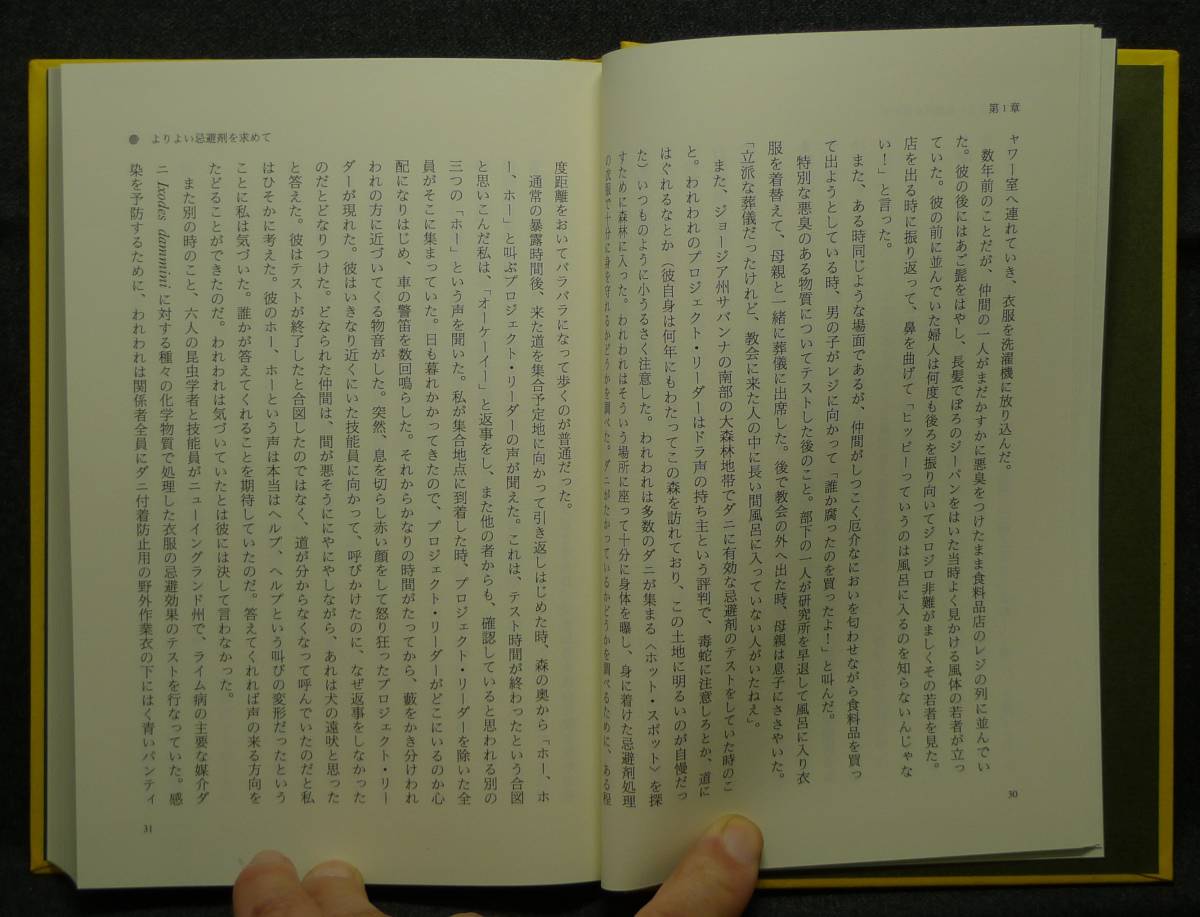 第1章
ャワー室へ連れていき、衣服を洗濯機に放り込んだ。
数年前のことだが、仲間の一人がまだかすかに悪臭をつけたまま食料品店のレジの列に並んでい
た。彼の後にはあご髭をはやし、長髪でぼろのジーパンをはいた当時よく見かける風体の若者が立っ
ていた。彼の前に並んでいた婦人は何度も後ろを振り向いてジロジロ非難がましくその若者を見た。
店を出る時に振り返って、鼻を曲げて「ヒッピーっていうのは風呂に入るのを知らないんじゃな
い！」と言った。
また、ある時同じような場面であるが、仲間がしつこく厄介なにおいを匂わせながら食料品を買っ
て出ようとしている時、男の子がレジに向かって「誰か腐ったのを買ったよ！」と叫んだ。
特別な悪臭のある物質についてテストした後のこと。部下の一人が研究所を早退して風呂に入り衣
服を着替えて、母親と一緒に葬儀に出席した。後で教会の外へ出た時、母親は息子にささやいた。
「立派な葬儀だったけれど、教会に来た人の中に長い間風呂に入っていない人がいたねえ」。
また、ジョージア州サバンナの南部の大森林地帯でダニに有効な忌避剤のテストをしていた時のこ
と。われわれのプロジェクト・リーダーはドラ声の持ち主という評判で、毒蛇に注意しろとか、道に
はぐれるなとか（彼自身は何年にもわたってこの森を訪れており、この土地に明るいのが自慢だっ
た）いつものように小うるさく注意した。われわれは多数のダニが集まる〈ホット・スポット〉を探
すために森林に入った。われわれはそういう場所に座って十分に身体を曝し、身に着けた忌避剤処理
の衣服で十分に身を守れるかどうかを調べた。ダニがたかっているかどうかを調べるために、ある程
30
よりよい忌避剤を求めて
度距離をおいてバラバラになって歩くのが普通だった。
通常の暴露時間後、来た道を集合予定地に向かって引き返しはじめた時、森の奥から「ホー、ホ
ー、ホー」と叫ぶプロジェクト・リーダーの声が聞えた。これは、テスト時間が終わったという合図
と思いこんだ私は、「オーケーイー」と返事をし、また他の者からも、確認していると思われる別の
三つの「ホー」という声を聞いた。私が集合地点に到着した時、プロジェクト・リーダーを除いた全
員がそこに集まっていた。日も暮れかかってきたので、プロジェクト・リーダーがどこにいるのか心
配になりはじめ、車の警笛を数回鳴らした。それからかなりの時間がたってから、藪をかき分けわれ
われの方に近づいてくる物音がした。突然、息を切らし赤い顔をして怒り狂ったプロジェクト・リー
ダーが現れた。彼はいきなり近くにいた技能員に向かって、呼びかけたのに、なぜ返事をしなかった
のだとどなりつけた。どなられた仲間は、間が悪そうににやにやしながら、あれは犬の遠吠と思った
と答えた。彼はテストが終了したと合図したのではなく、道が分からなくなって呼んでいたのだと私
はひそかに考えた。彼のホー、ホーという声は本当はヘルプ、ヘルプという叫びの変形だったという
ことに私は気づいた。誰かが答えてくれることを期待していたのだ。答えてくれれば声の来る方向を
たどることができたのだ。われわれは気づいていたとは彼には決して言わなかった。
また別の時のこと、六人の昆虫学者と技能員がニューイングランド州で、ライム病の主要な媒介ダ
ニ Ixodes dammini に対する種々の化学物質で処理した衣服の忌避効果のテストを行なっていた。感
染を予防するために、われわれは関係者全員にダニ付着防止用の野外作業衣の下にはく青いパンティ
31